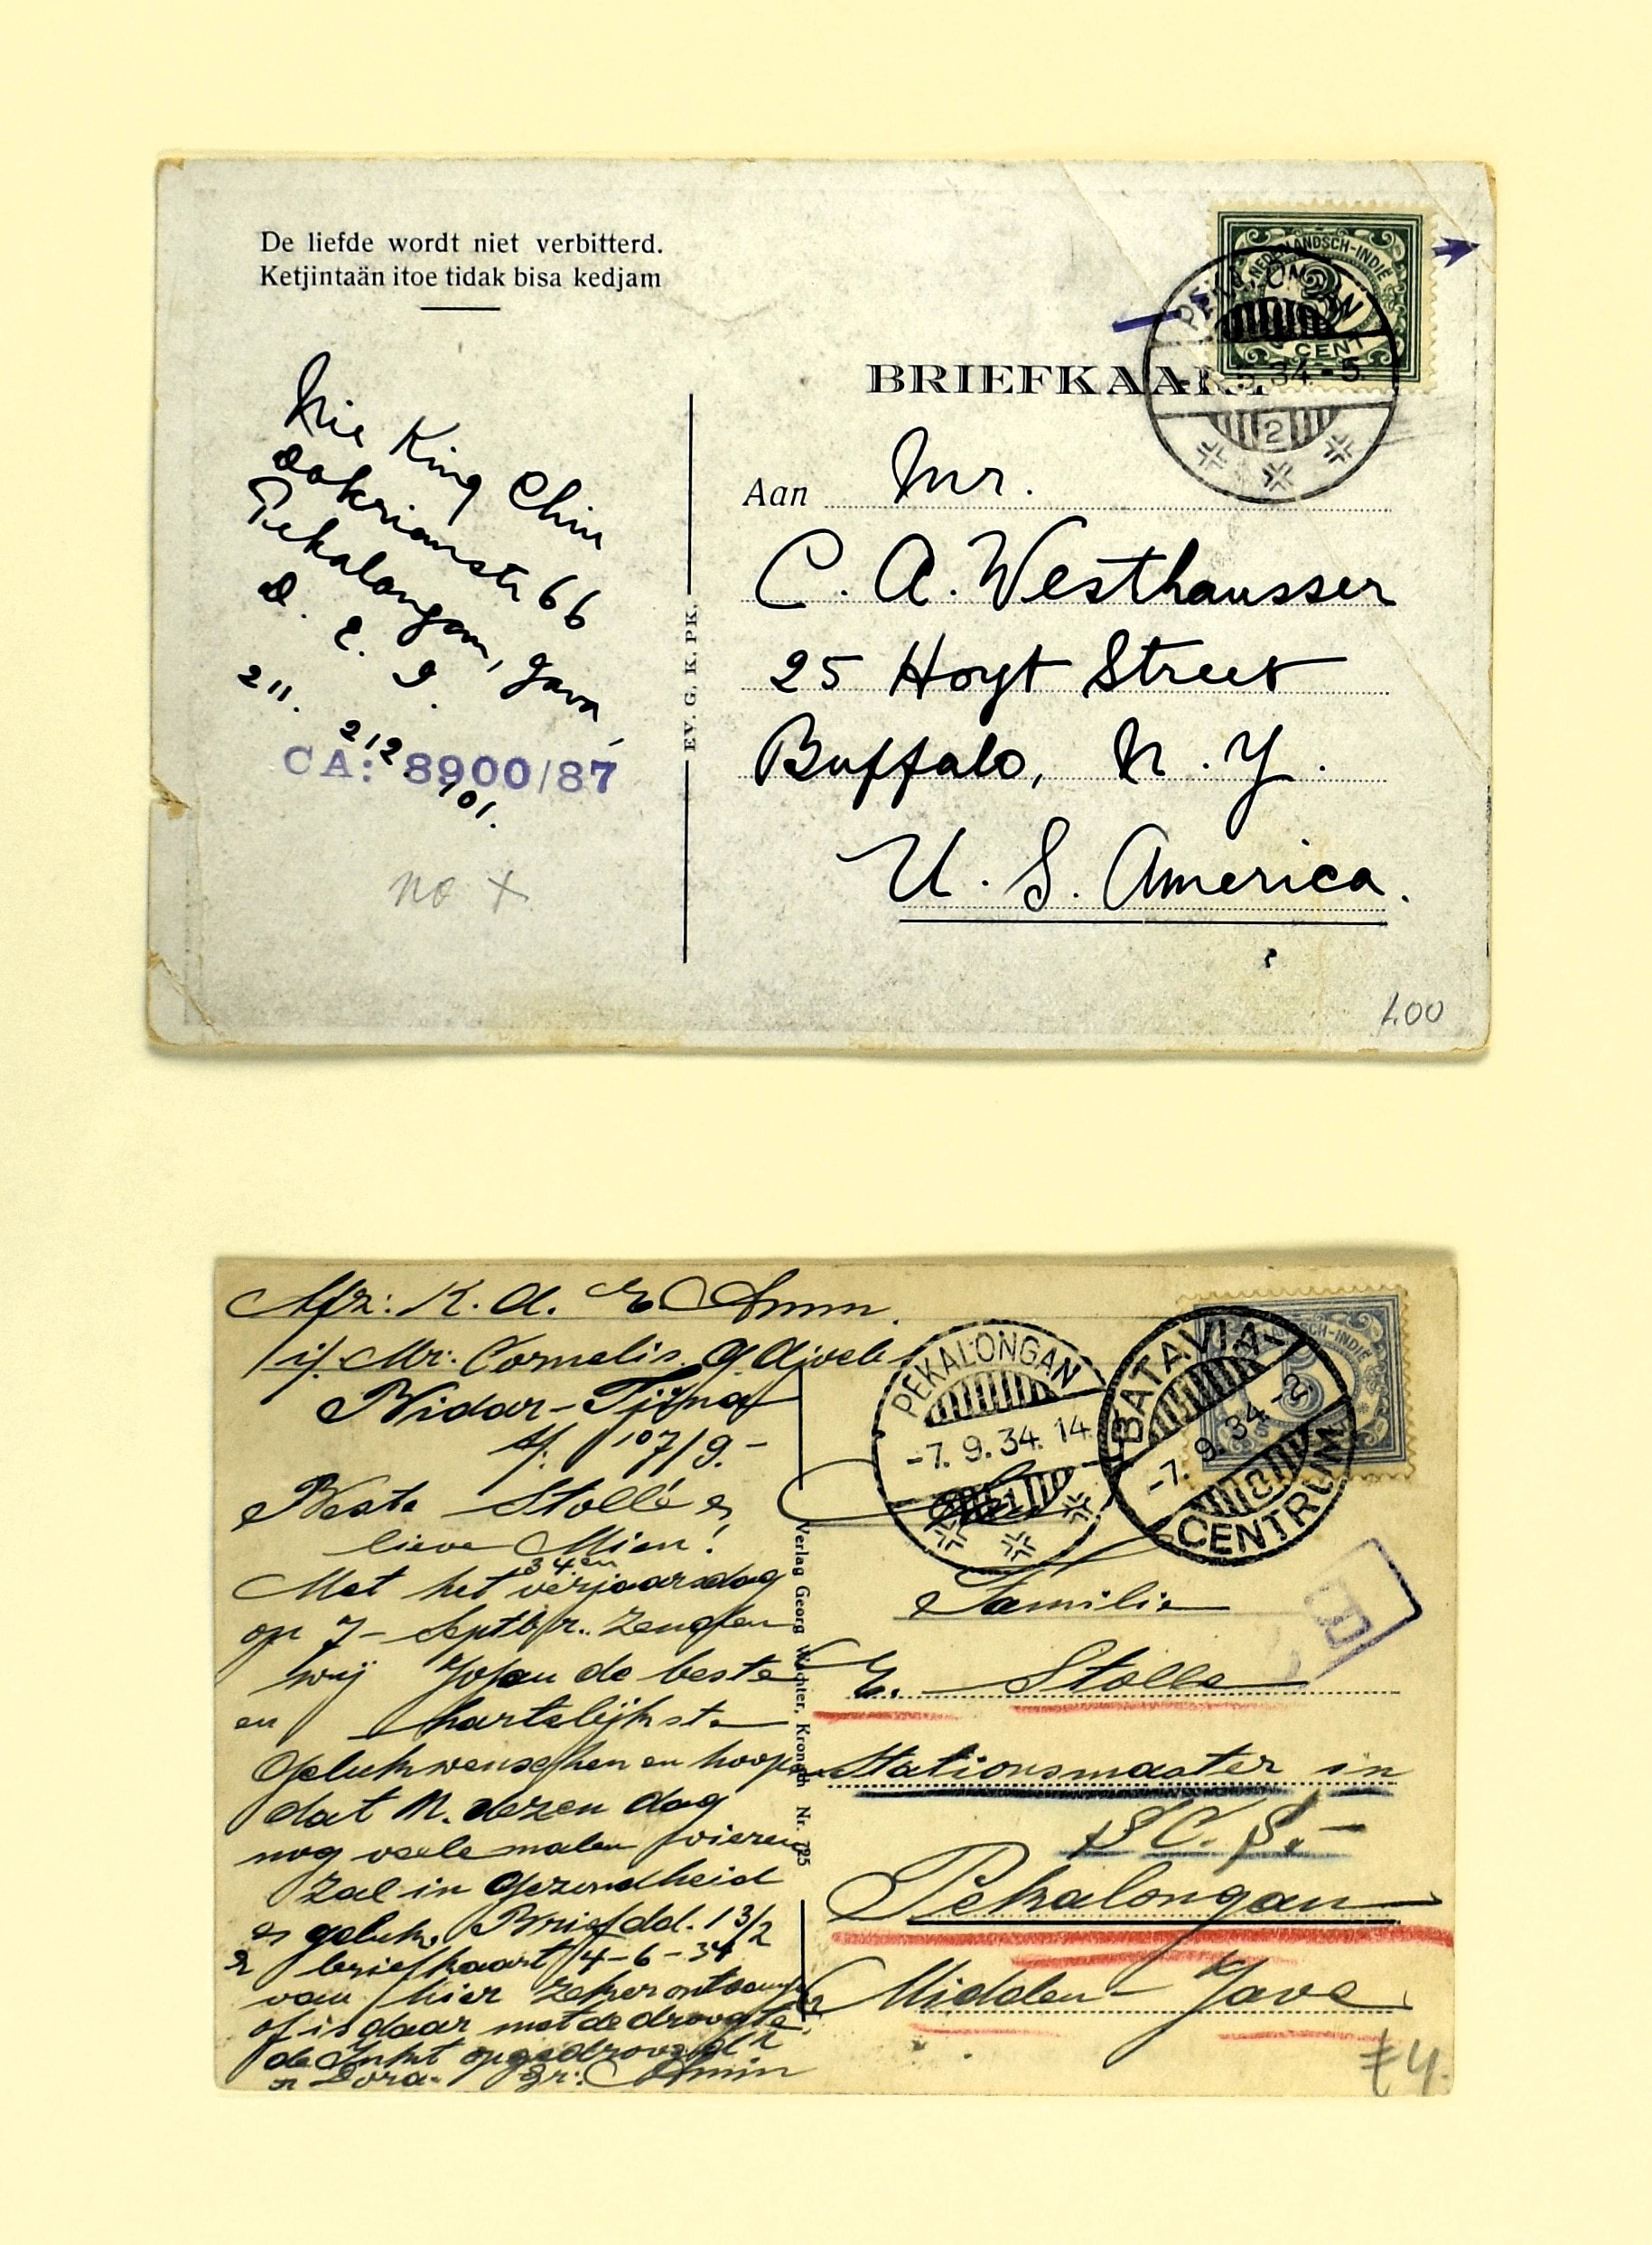 De liefde wordt niet verbitterd.
Ketjintaän itoe tidak bisa kedjam
NEDERLANDSCH-INDIË
3
CENT
5.34.-5.
2
BRIEFKAART
Nie King Chin
Dokrianstr 66
Pekalongan, Java,
D. E. I.
211. 212
101.
CA: 8900/87
no x
EV. G. K. PK.
Aan Mr.
C. A. Westhausser
25 Hoyt Street
Buffalo, N. Y.
U. S. America.
1.00
Afz: K. A. E. Amin.
i/. Mr. Cornelis
Bidar-Tjina
7/9.-
Beste Stollé en
lieve Mien!
Met het 34.en verjaarsdag
op 7- Septbr. zenden
wij de beste
en hartelijkste
Gelukwenschen en hopen
dat M. dezen dag
nog vele malen vieren
zal in gezondheid
en geluk. Brief dd. 13/2
briefkaart 4-6-34
van hier zeker ontvangen
of is daar met de droogte
de Inkt opgedroogd
Dora. Gr: Amin
Verlag Georg Wächter, Kronach Nr. 725
PEKALONGAN
-7. 9.34. 14
BATAVIA-
-7. 9.34.-2
CENTRUM
Familie
E. Stolle
Stationsmaster in
S.C.S.-
Pekalongan
Midden-Java
B
£4.